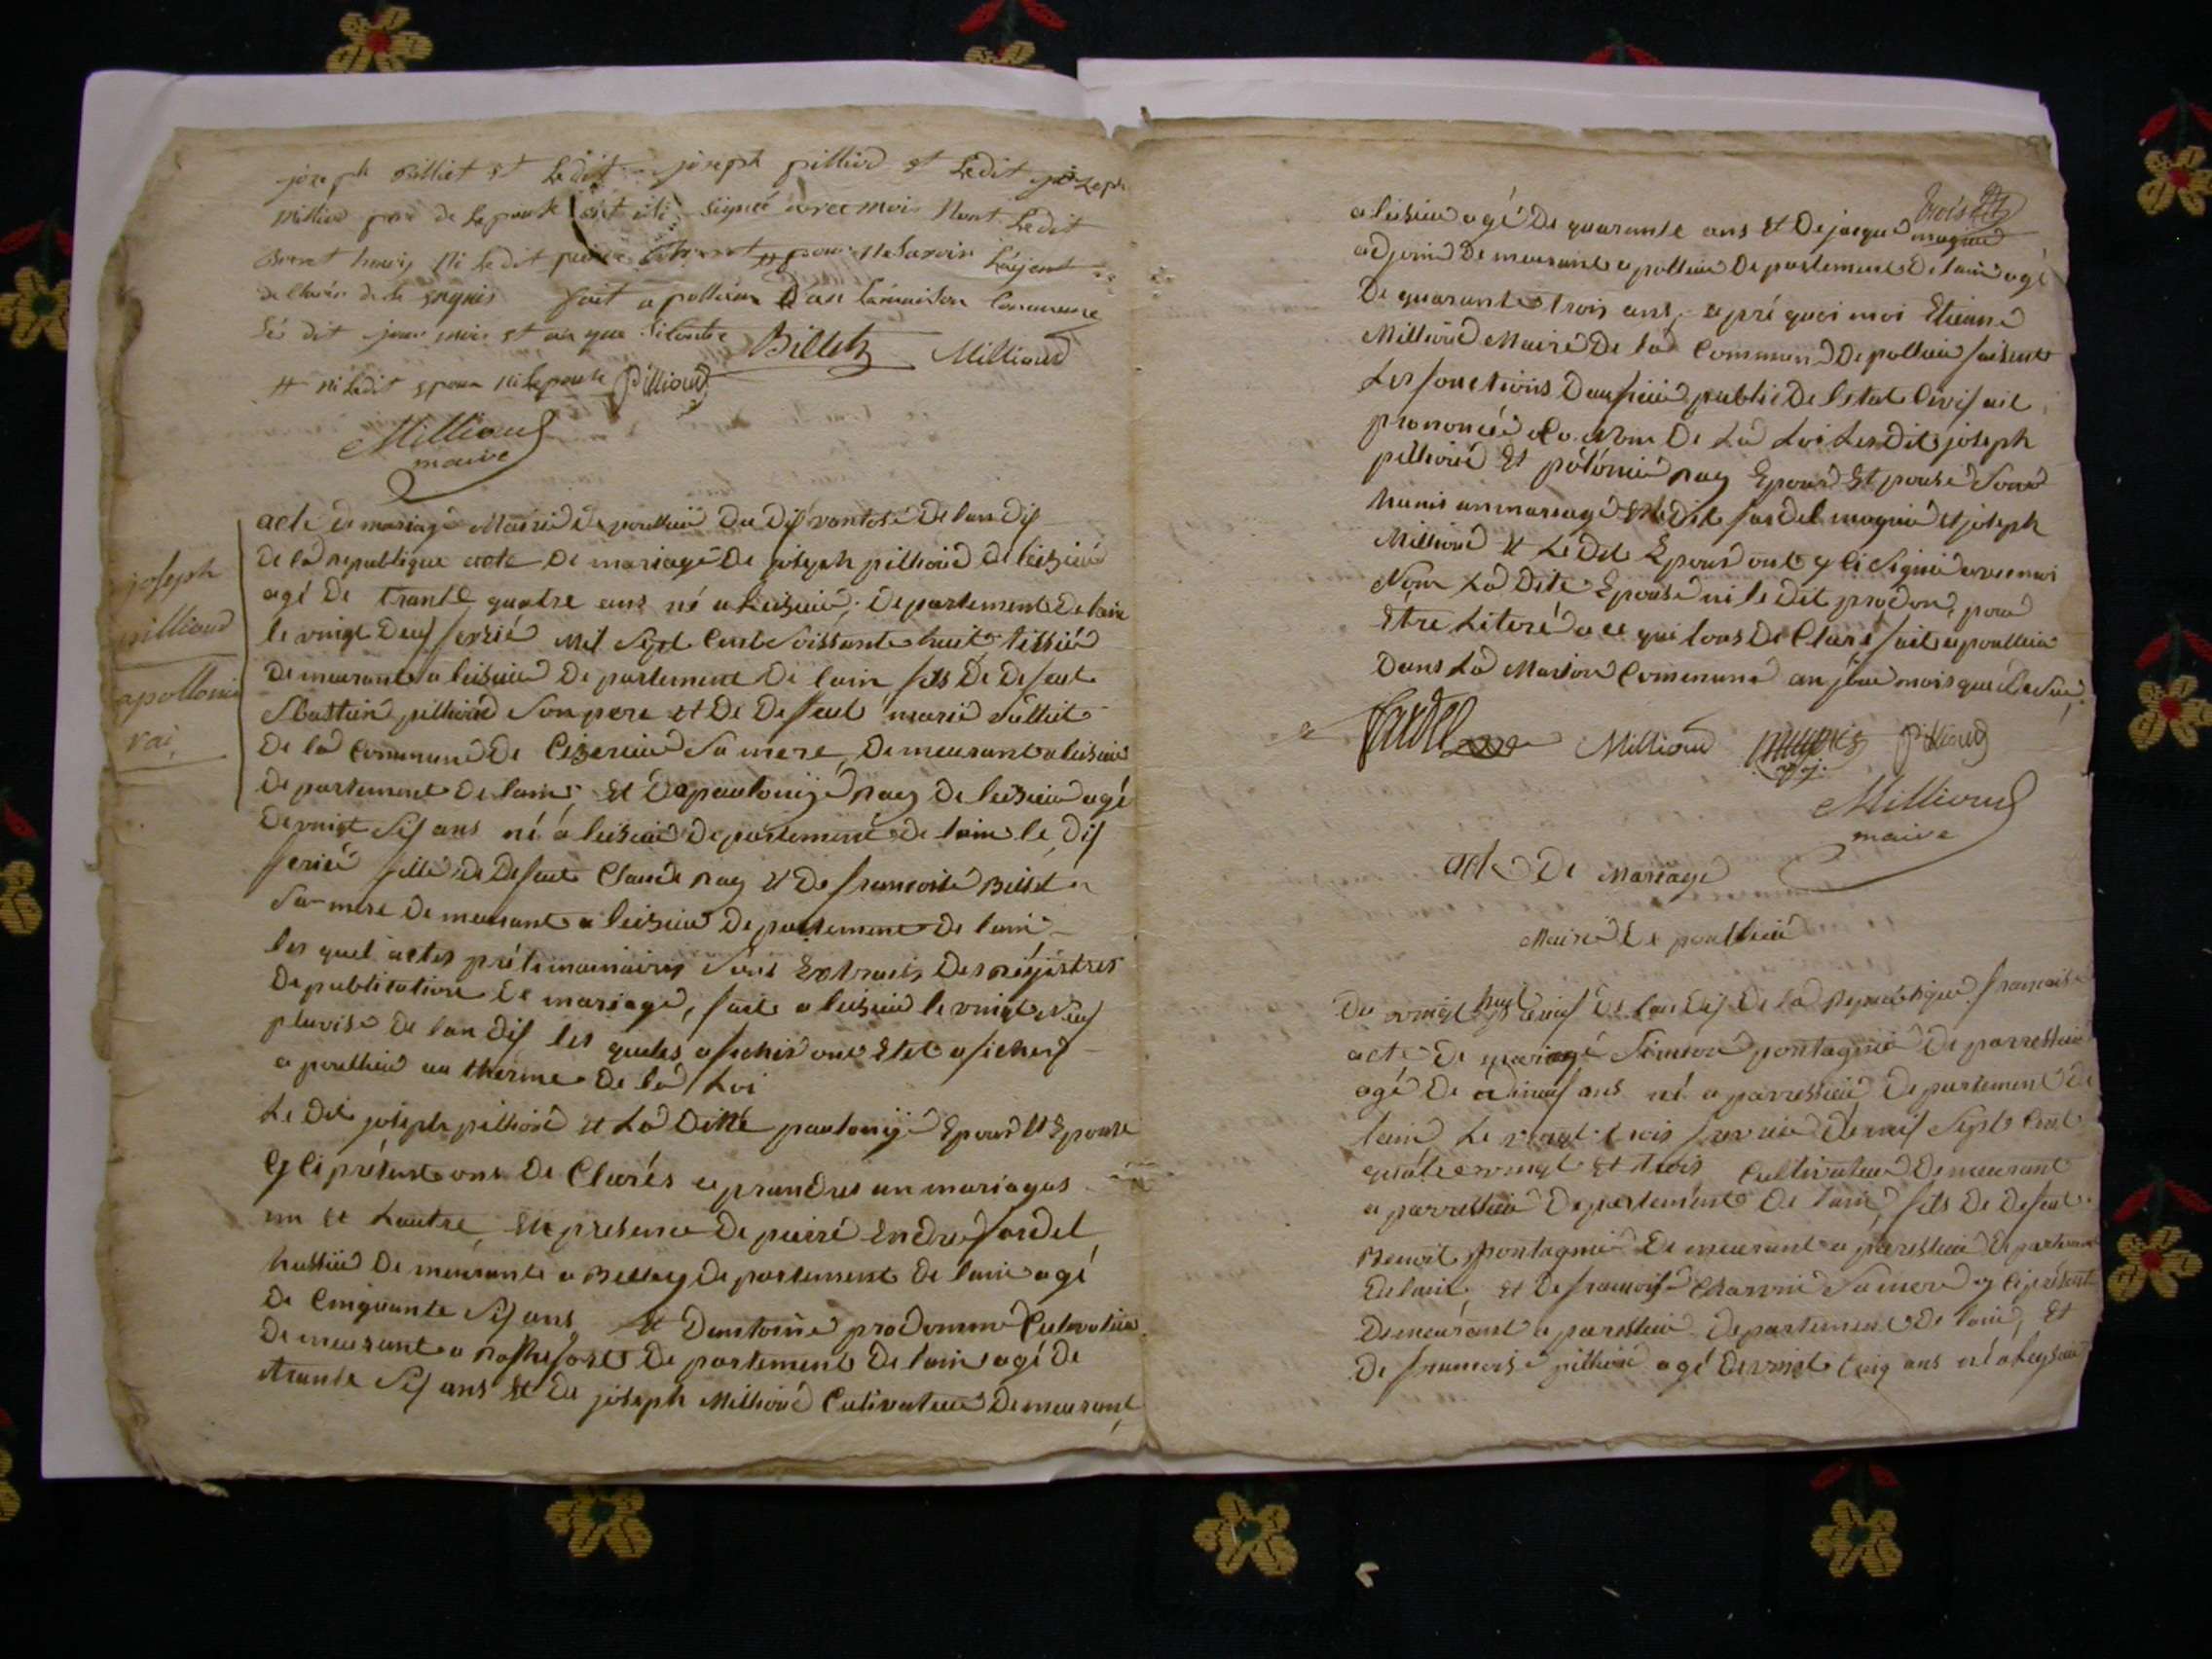 joseph Billiet et Ledit joseph pilliod et Ledit joseph
Milliod pere de Lepouse ont isi signé avec moi Nont Ledit
ni Ledit pour ne savoir
de Clarér de Se enquis fait a pollieu Dan lamaison Commune
Les dit jour mois et an que
Billet Millioud
# ni ledit epoux ni Lepouse Pillioud
Millioud
maire
joseph
pillioud
apollonie
rai
acte de mariage Mairie de poullieu Du Dis vantose De lan Dis
de la republique acte De mariage De joseph pillioud de leisieu
agé De trante quatre ans né a leisieu, Departement De lain
le vingt Deuf Mil Sept Cent Soissante huit tissié
Demeurant a leisieu Departement De lain fils De Defeut
Sbastien pilliod Son pere et De Defeut marie
De la Commune De Ceizerieu Sa mere, Demeurant a leisieu
Departement De lain, Et De paulonije ray De leisieu agé
De vingt Sis ans né a leisieu Departement De lain le Dis
fille De Defeut Claude ray et De francoise Billet
Sa mere Demeurant a leisieu Departement De lain
les quel actes prélimainaires Sont Extraits Des régistres
De publication De mariage, fait a leisieu le vingt Neuf
pluvise De lan Dis les queles afiches ont Etet afichers
a poullieu au therme De la Loi
Le Dit joseph pilliod et La Ditte paulonije Epoux Et Epouse
y Ci présent ons De Clarés a prandres an mariages
un et Lautre, En presence De pierre Endre fardel
hussiié Demeurante a Belley Departement De lain agé
De Cinquante Sis ans Et Dantoine prodomme Cultivateur
Demeurant a Departement De lain agé De
trante Sis ans Et De joseph Milliod Cultivateur Demeurant
trois
a leisieu agé De quarante ans Et De jacque magnin
adjoint Demeurant a pollieu Departement De lain agé
De quarante trois ans, apré quoi moi Etienne
Milliod Maire De la Commune De pollieu faisant
Les fonctions publi De letat Civis ait
prononcée Nom De La Loi Les Dits joseph
pilliod Et pòlónie ray Epoux Et pouse Sont
hunis an mariage Ledit fardel magnin et joseph
Milliod et Ledit Epoux ont y Ci Signié avec moi
Non La Dite Epouse ni le Dit prodon, pour
Etre Literé a ce qui lons De Claré fait a poullieu
Dans La Maison Commune an jour mois que
Fardel Millioud magnin adj. Pillioud
Millioud
maire
acte De Mariage
Mairie De poullieu
Du vingt huit De lan Dis De la Republique francaise
acte De mariage Simeon pontagnié De parressieu
agé De ans né a parressieu Departement De
lain Le vingt trois Sept Cent
quátre vingt et trois Cultivateur Demeurant
a parressieu Departement De lain, fils De Defeut
Benoit pontagnié Demeurant a paressieu Departement
De lain Et De francoise Charvin Sa mere y Ci présent
Demeurant a paressieu Departement De lain, Et
De francoise pilliod agé De vingt Cinq ans né a Leysieu